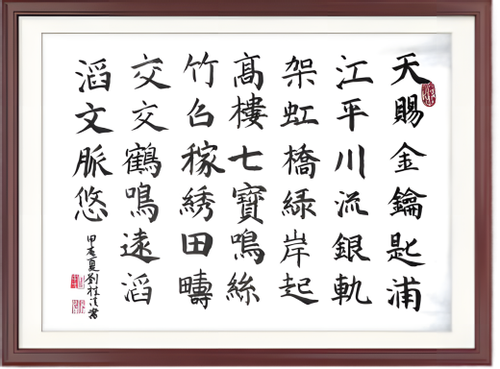 天賜金鑰匙浦
江平川流銀軌
架虹橋緑岸起
髙樓七寶鳴絲
竹召稼綉田疇
交交鶴鳴遠滔
滔文脈悠
甲辰夏劉桂清書